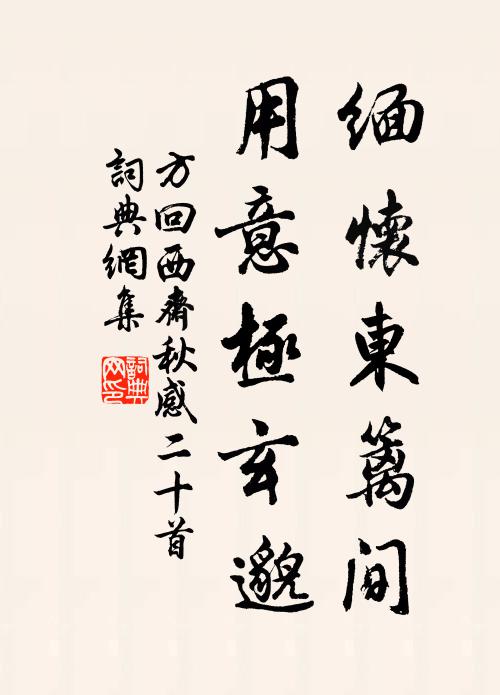 緬懷東籬間
用意極玄邈
方回西齋秋感二十首
詞典網集
詞典网印